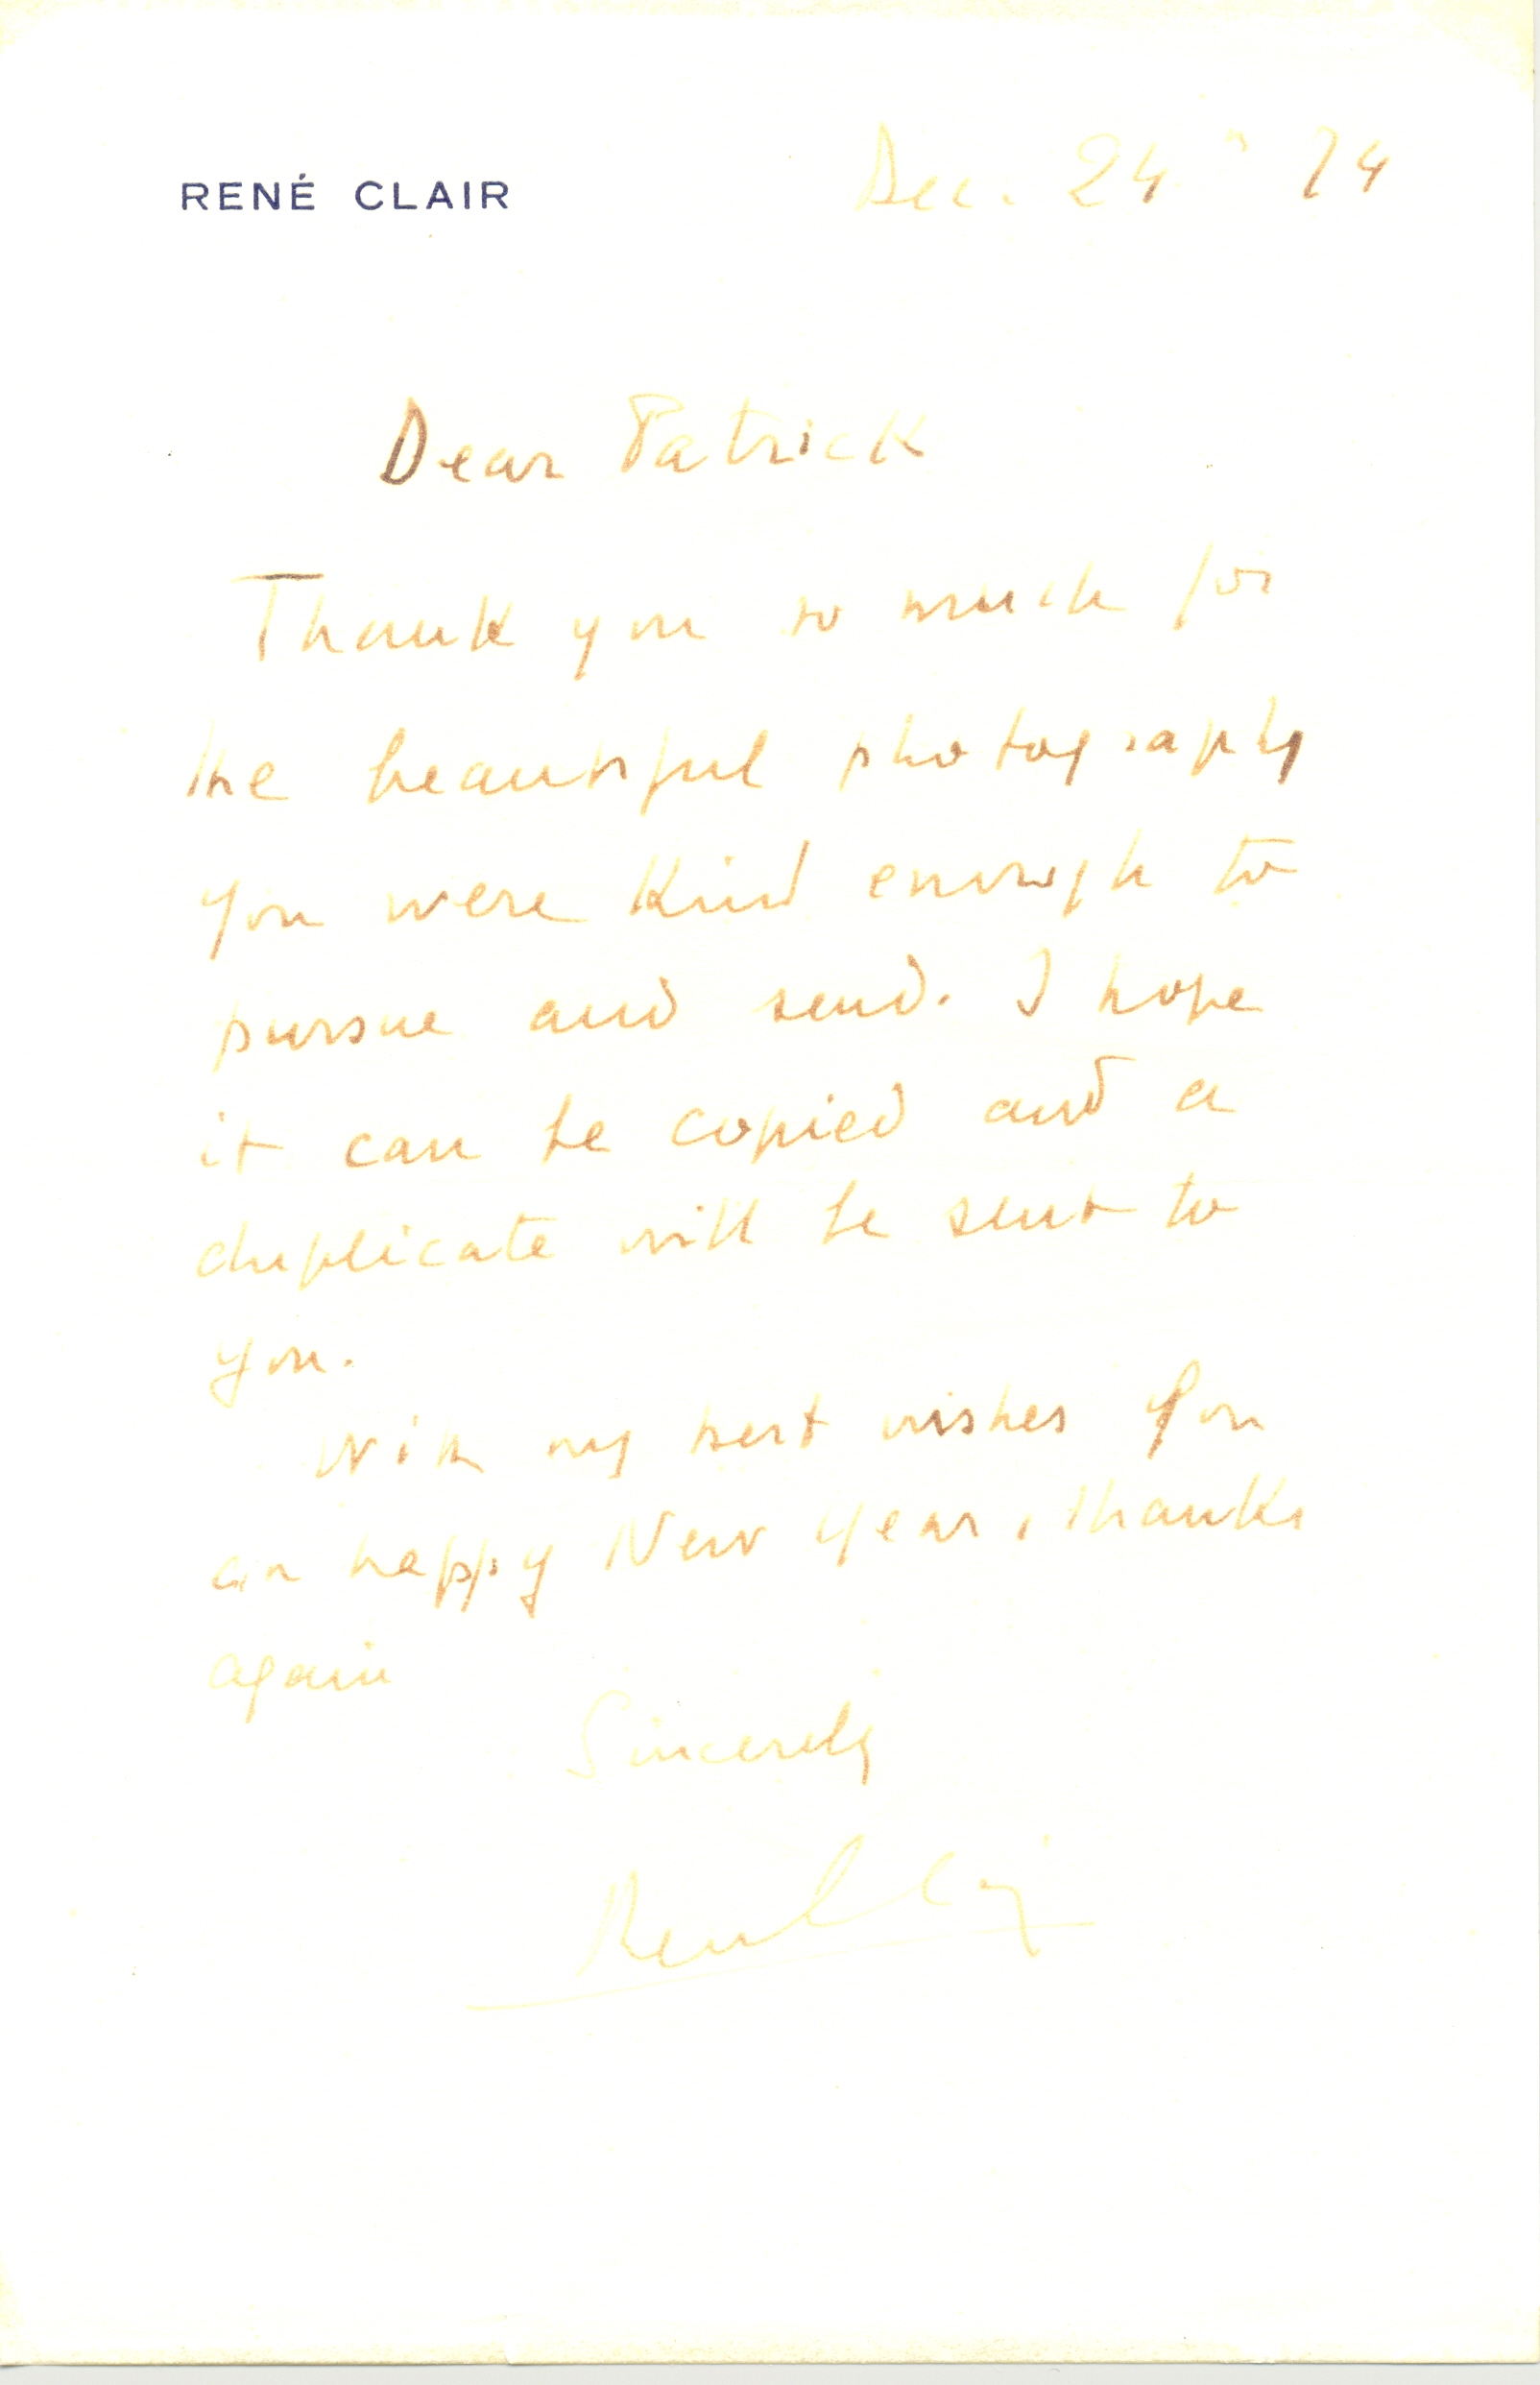 RENÉ CLAIR
Dec. 24 74
Dear Patrick
Thank you so much for
the beautiful photography
you were kind enough to
pursue and send. I hope
it can be copied and a
duplicate will be sent to
you.
With my best wishes for
an happy New Year, thanks
again
Sincerely
René Clair